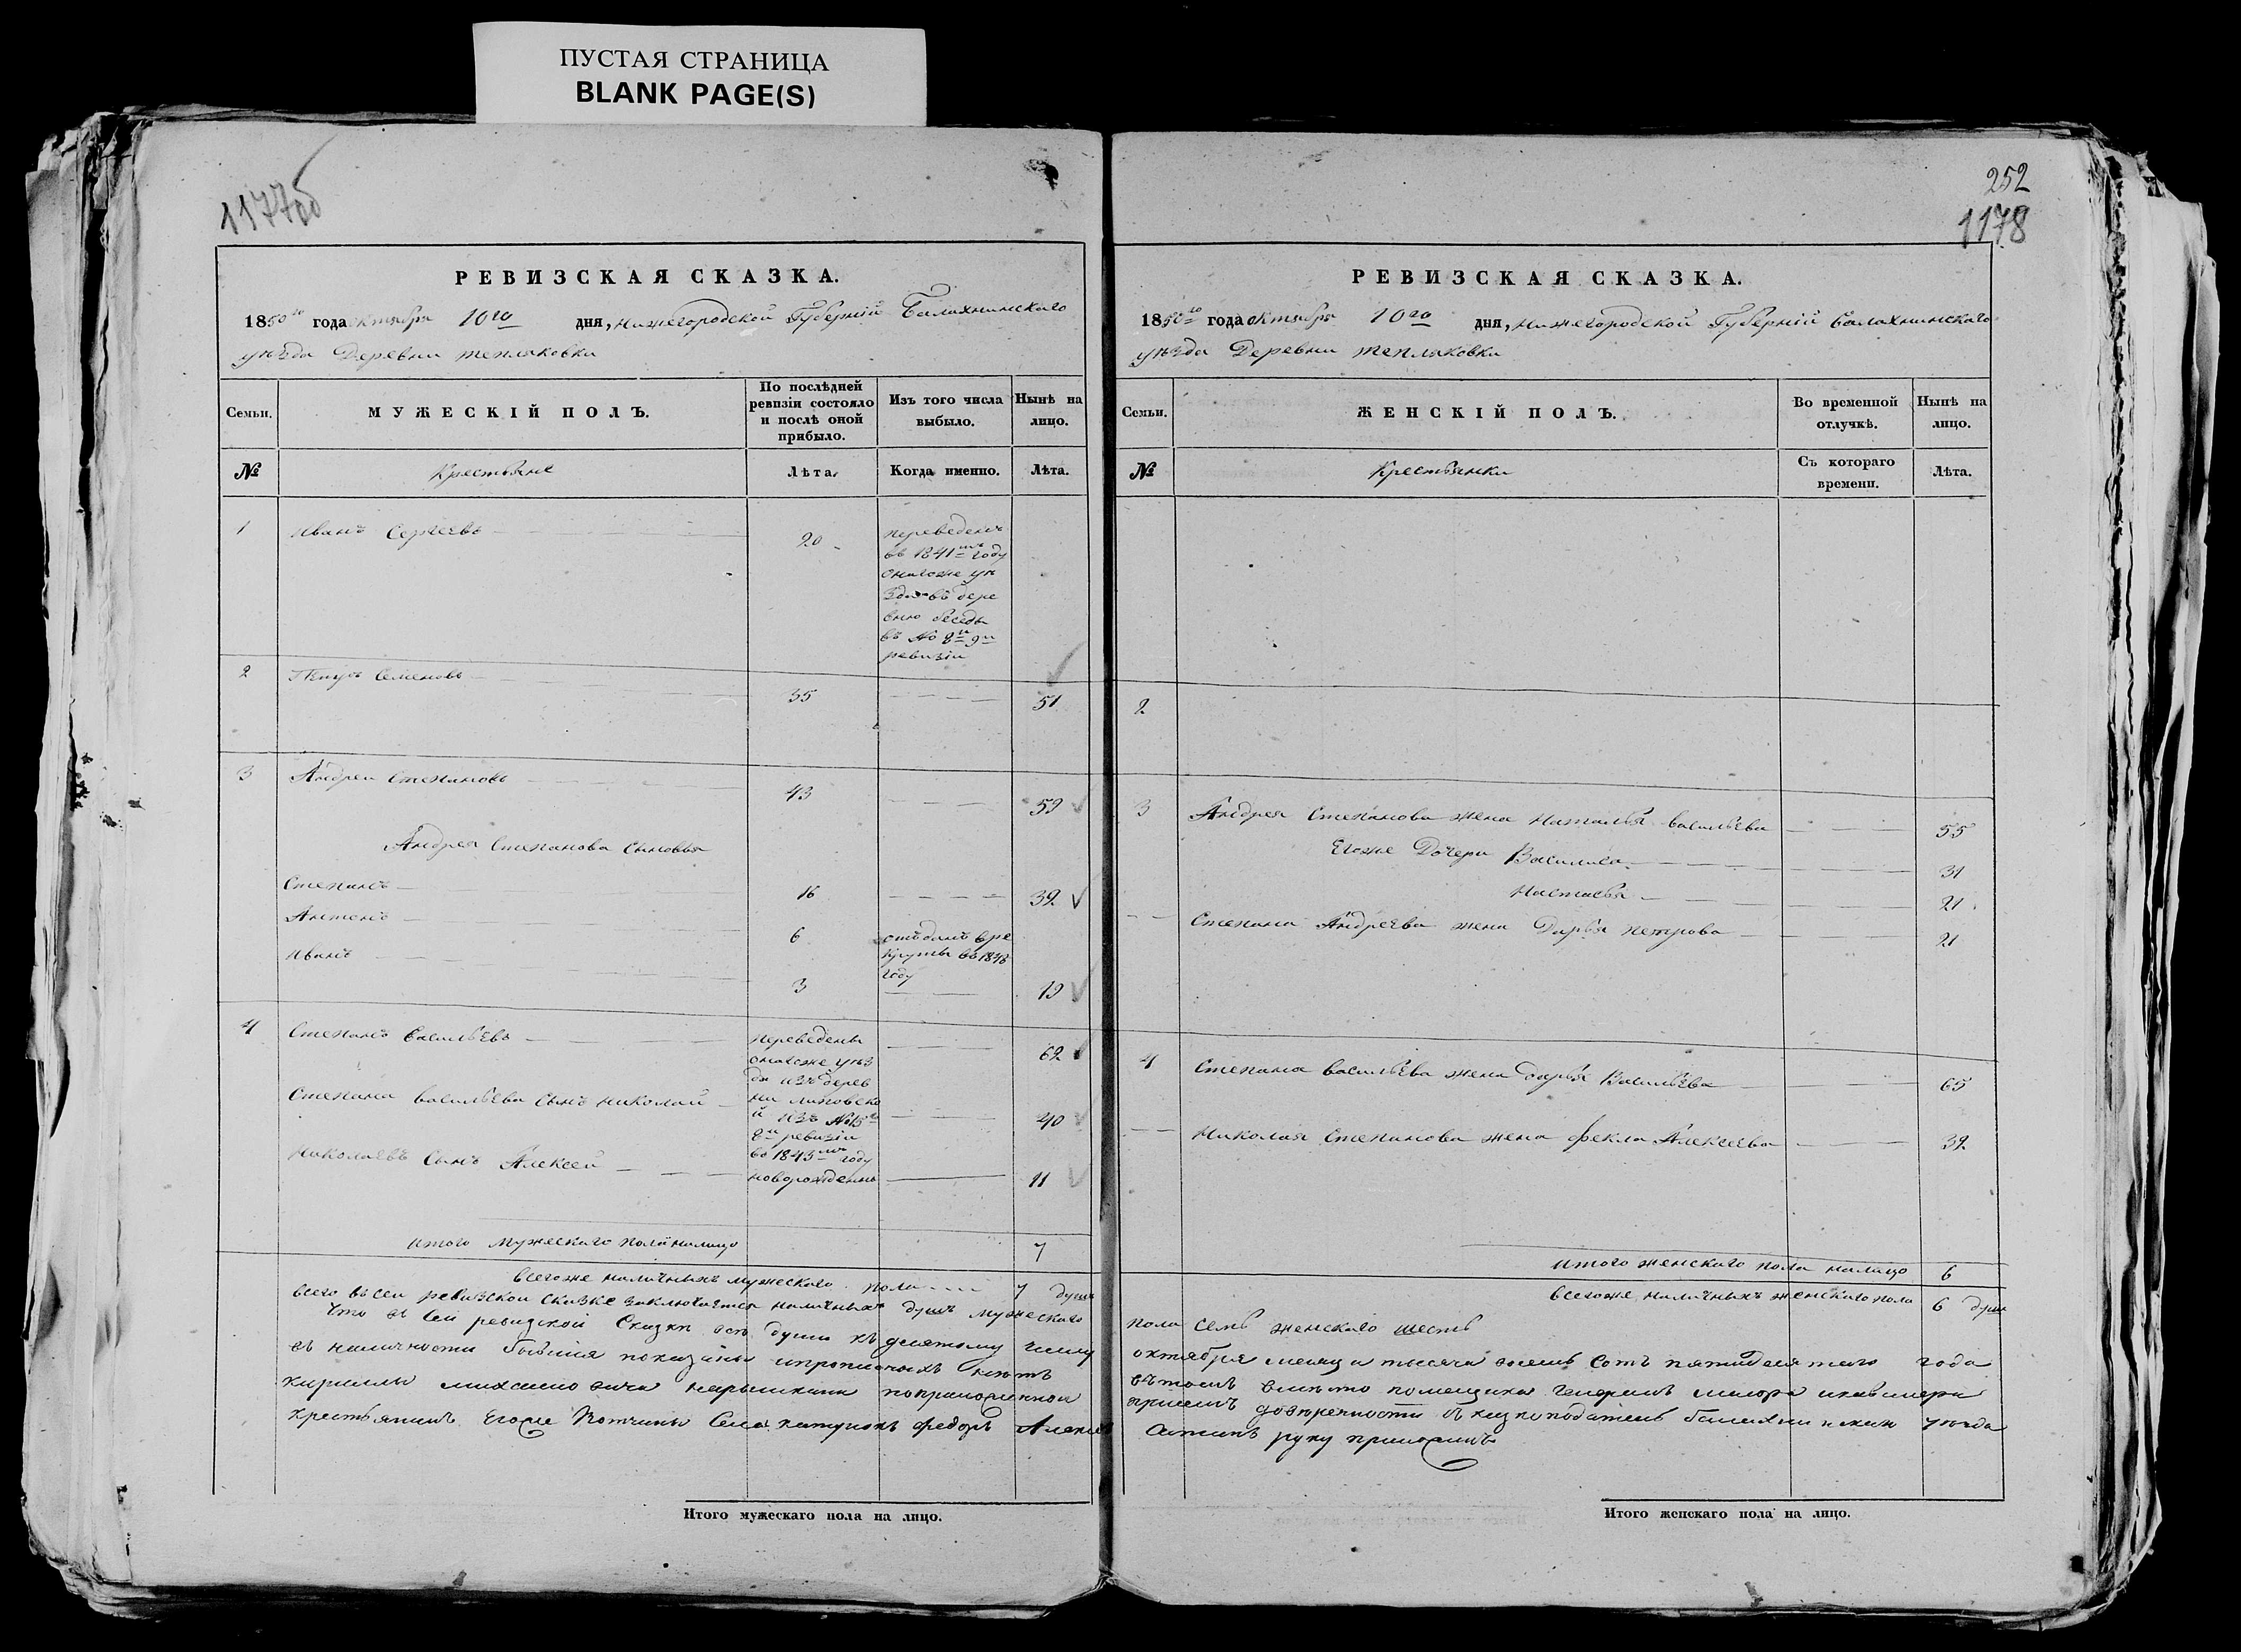 ПУСТАЯ СТРАНИЦА
BLANK PAGE(S)
1177об
РЕВИЗСКАЯ СКАЗКА.
1850го года октября 10го дня, нижегородской Губерніи Балахнинскаго
уѣзда Деревни тепляковки
Семьи.
МУЖЕСКІЙ ПОЛЪ.
По послѣдней
ревизіи состояло
и послѣ оной
прибыло.
Изъ того числа
выбыло.
Нынѣ на
лицо.
№
Крестьяне
Лѣта.
Когда именно.
Лѣта.
1 иванъ Сергеевъ 20
переведенъ
въ 1841мъ году
онагоже уѣ
зда въ дере
вню беседы
въ № 8й 9й
ревизіи
2 Петръ Семеновъ 35 51
3 Андреи Степановъ 43 59
Андрея Степанова сыновья
Степанъ 16 39
Антонъ 6 отъданъ вре
круты въ 1848
году
иванъ 3 19
4 Степанъ васильевъ 62
переведены
онагоже уѣз
да изъ дерев
ни липовско
й изъ №15го
8й ревизіи
въ 1843мъ году
Степана васильева сынъ николай 40
Николаевъ сынъ Алексей новорожденны 11
итого мужескаго пола налицо 7
всегоже наличныхъ мужескаго пола 7 душъ
всего въ сеи ревизскои сказке заключается наличныхъ душъ мужескаго
Что въ сей ревизской Сказки все души къ десятому числу
въ наличности бывшия показаны и прописныхъ нетъ
кириллы михаиловича нарышкина
крестьянинъ Егоже Вотчины Села катунокъ Федоръ Алексеевъ
Итого мужескаго пола на лицо.
252
1178
РЕВИЗСКАЯ СКАЗКА.
1850го года октября 10го дня, нижегородской Губерніи балахнинскаго
уѣзда Деревни тепляковки
Семьи.
ЖЕНСКІЙ ПОЛЪ.
Во временной
отлучкѣ.
Нынѣ на
лицо.
№
Крестьянки
Съ котораго
времени.
Лѣта.
2
3 Андрея Степанова жена наталья васильева 55
Егоже Дочери Василиса 31
Настасья 21
Степана Андреева жена Дарья петрова 21
4 Степана васильева жена дарья Васильева 65
Николая Степанова жена фекла Алексеева 39
итого женскаго пола налицо 6
всегоже наличныхъ женскаго пола 6 душъ
пола семь женскаго шесть
октября месяца тысяча восемь сотъ пятидесятаго года
въ томъ вместо помещика генералъ маиора и кавалера
руку приложилъ
Итого женскаго пола на лицо.